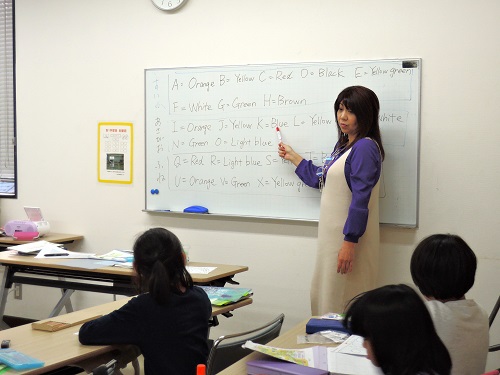 A = Orange B = Yellow C = Red D = Black E = Yellow green
F = White G = Green H = Brown
I = Orange J = Yellow K = Blue L = Yellow White?
N = Green O = Light blue
Q = Red R = Light blue S =
U = Orange V = Green X = Yellow